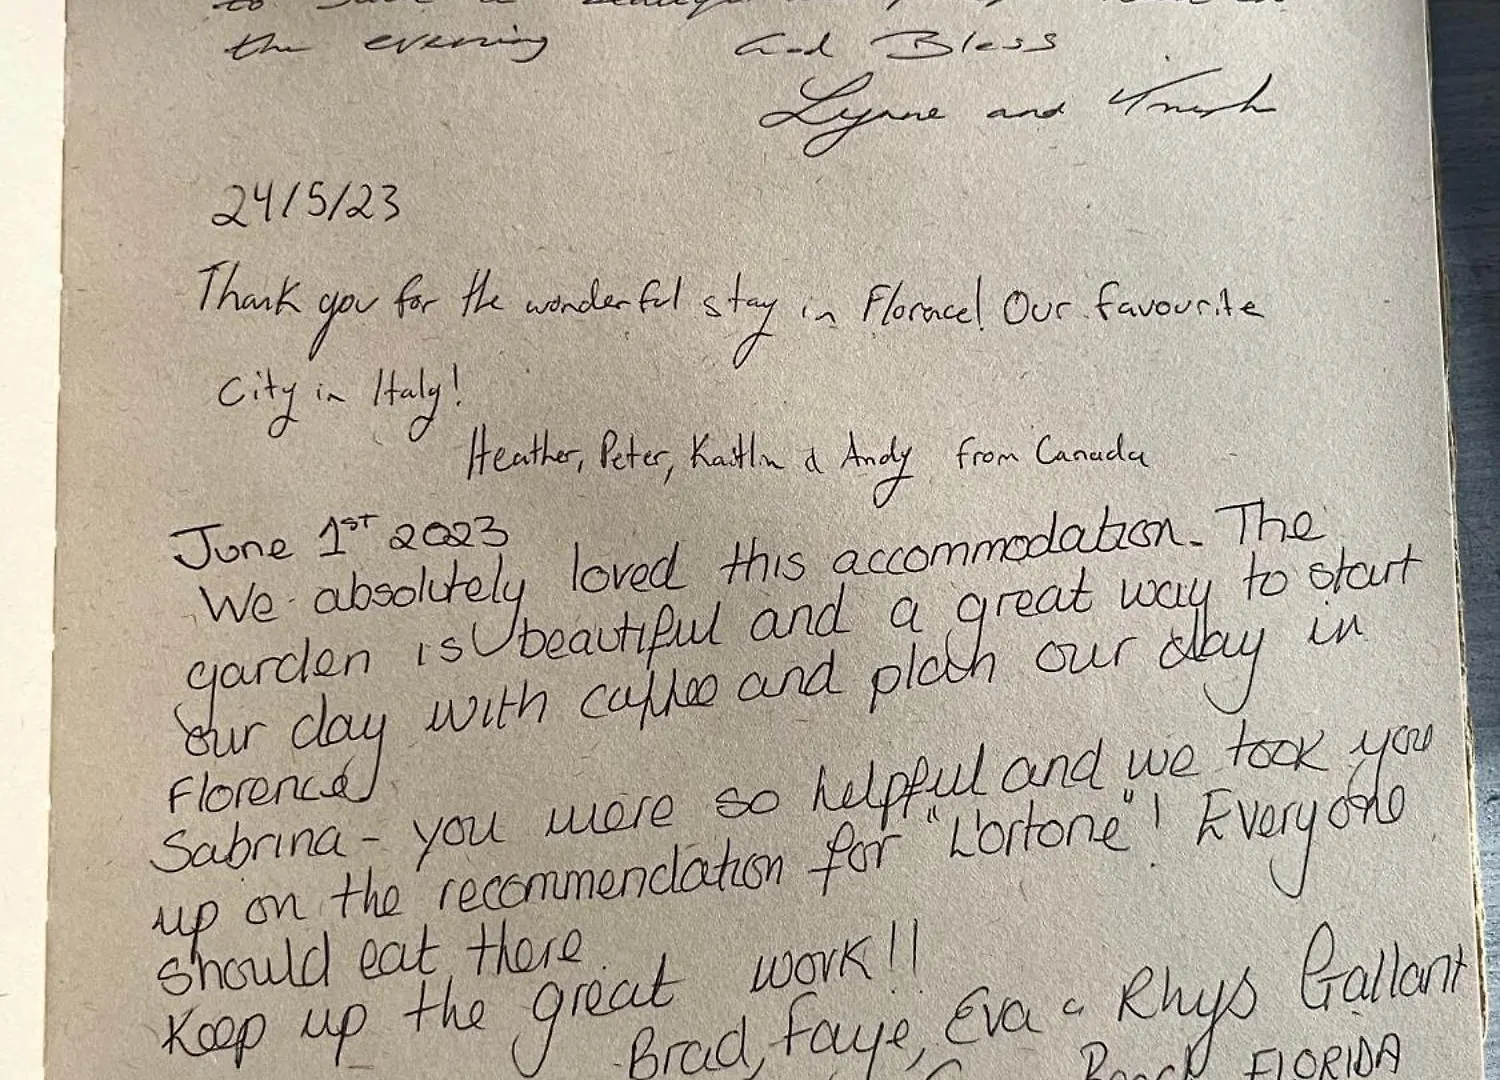 the evening God Bless
Lynne and
24/5/23
Thank you for the wonderful stay in Florence! Our favourite
City in Italy!
Heather, Peter, Kaitlin & Andy from Canada
June 1ST 2023
We absolutely loved this accommodation. The
garden is beautiful and a great way to start
our day with coffee and plan our day in
Florence
Sabrina - you were so helpful and we took you
up on the recommendation for "L'ortone"! Everyone
should eat there.
Keep up the great work!!
Brad, Faye, Eva & Rhys Gallant
Beach FLORIDA